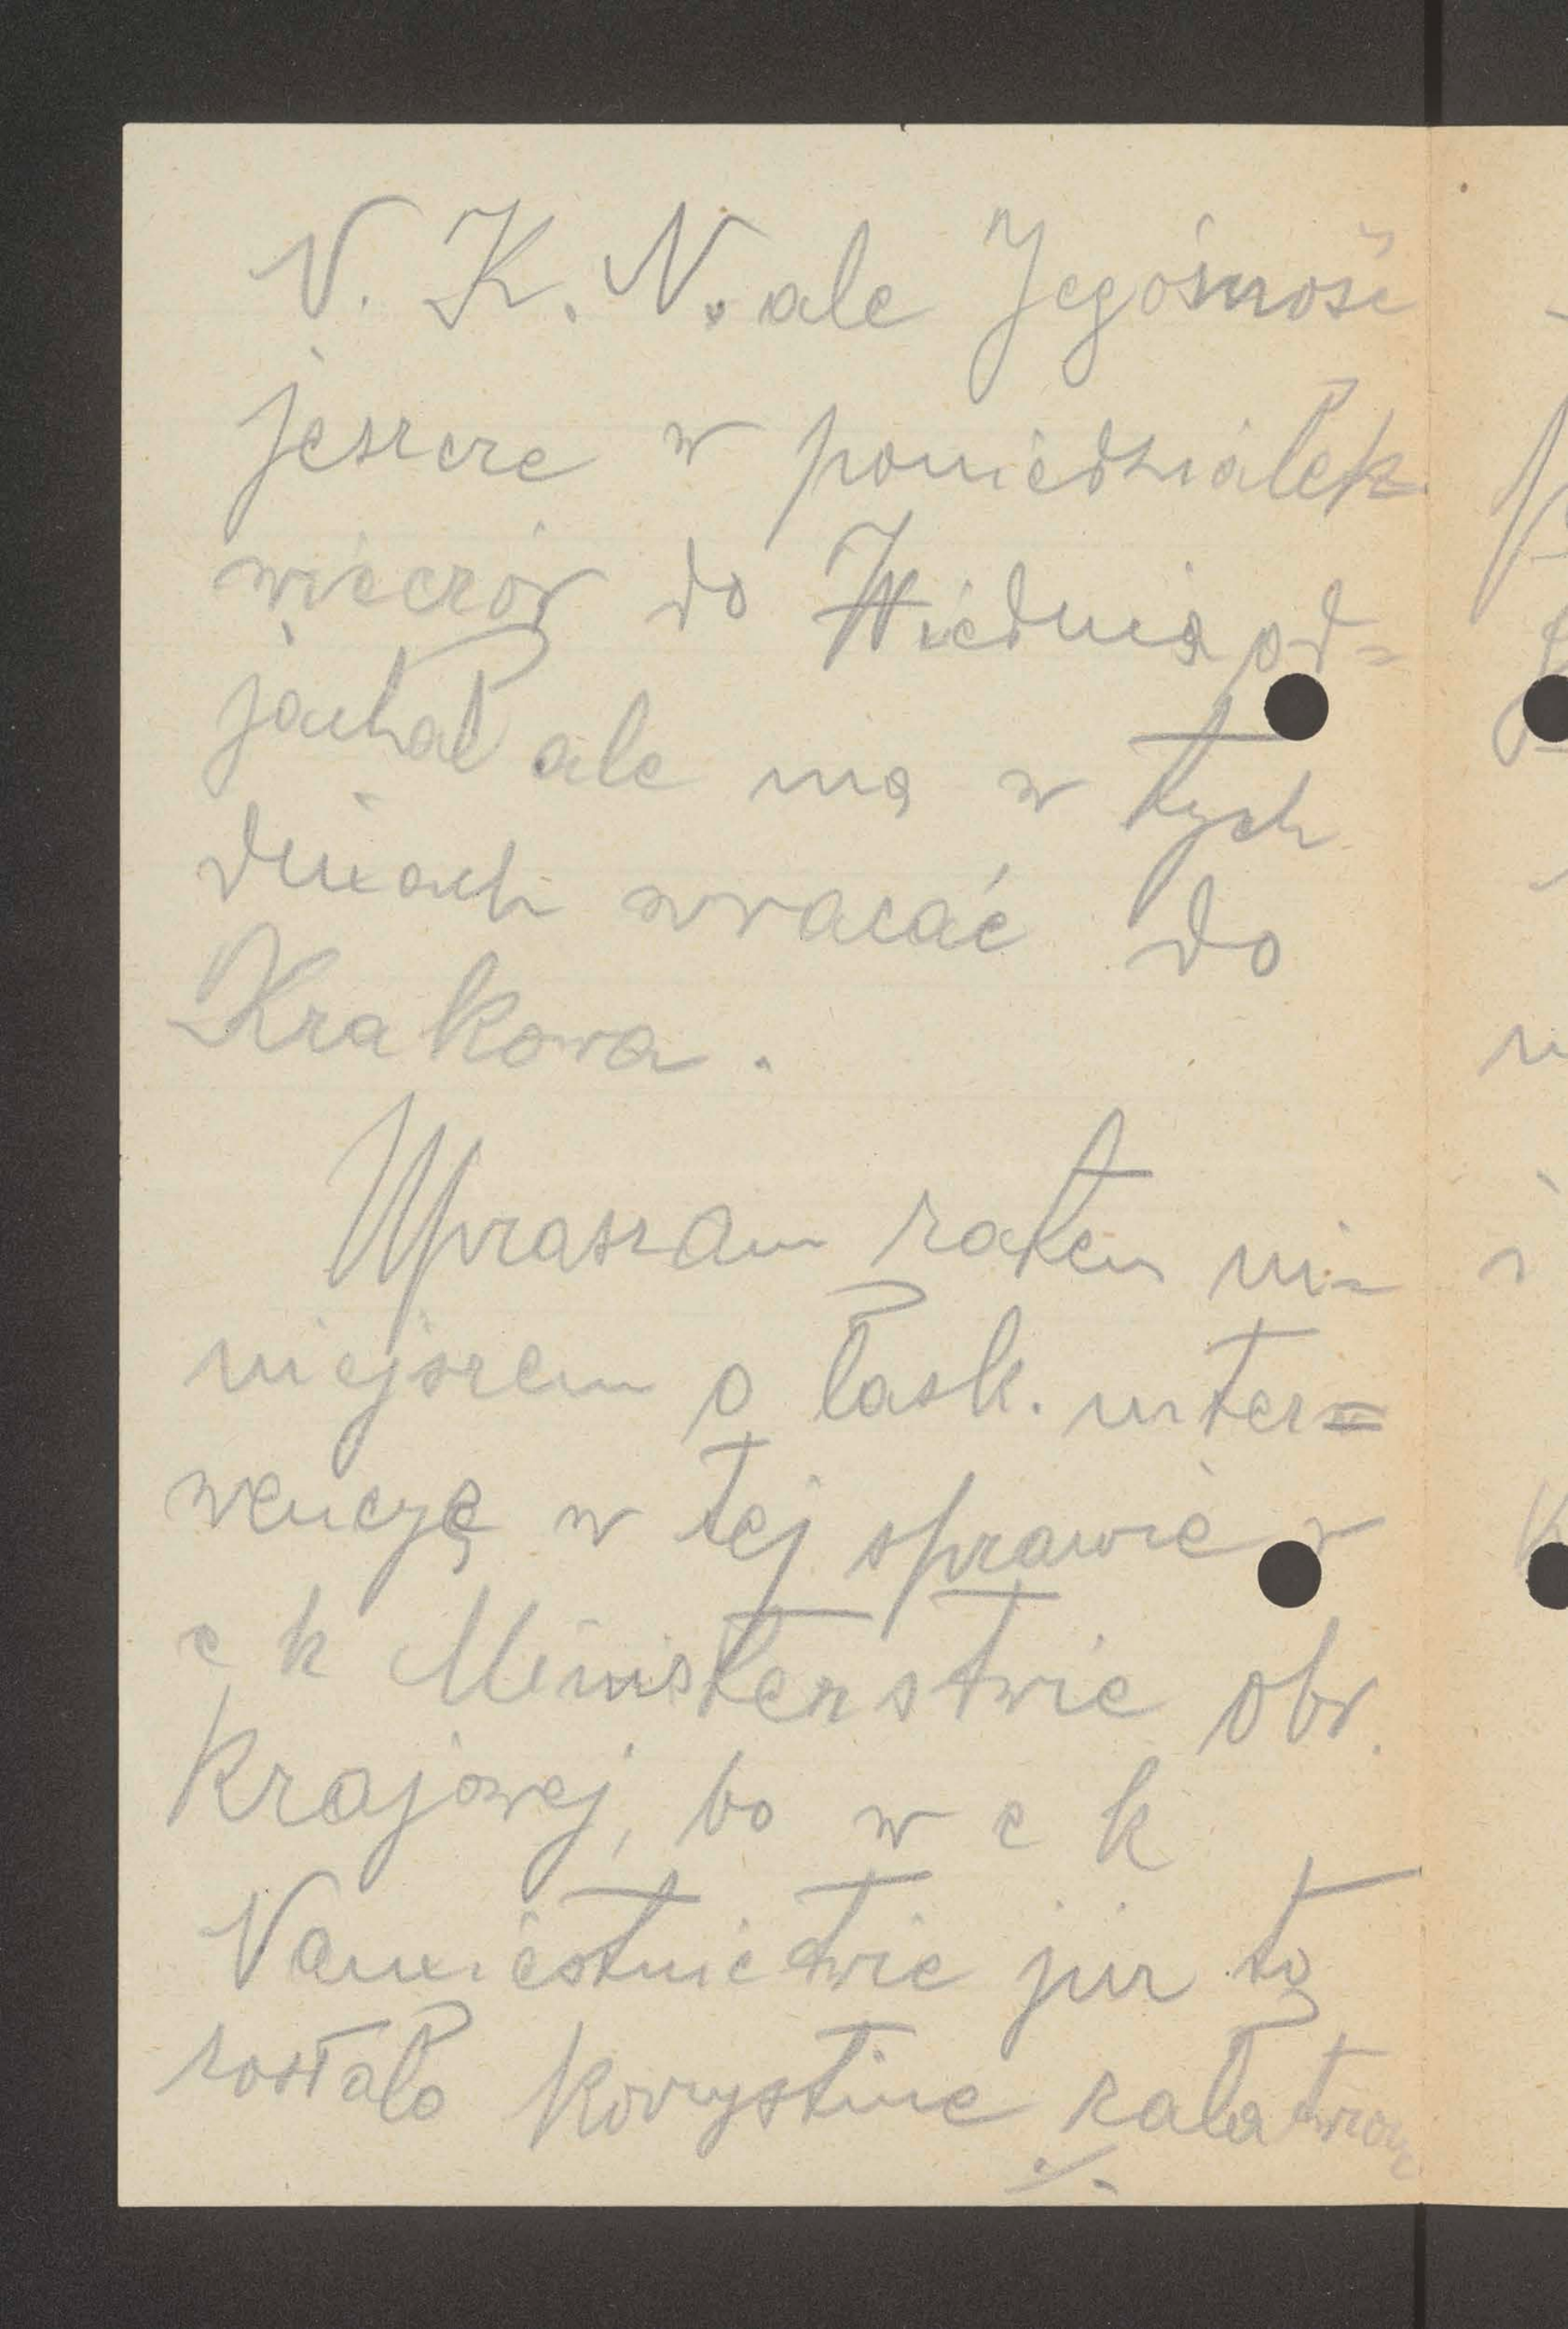 N. K. N. ale Jegomość
jeszcze w poniedziałek
wieczór do Wiednia od=
jachał ale ma w tych
dniach wracać do
Krakowa.
Upraszam zatem ni-
niejszem o łask. inter=
wencyę w tej sprawie w
c k Ministerstwie obr.
Krajowej, bo w c k
Namiestnictwie już to
zostało korzystnie załatwione
./.